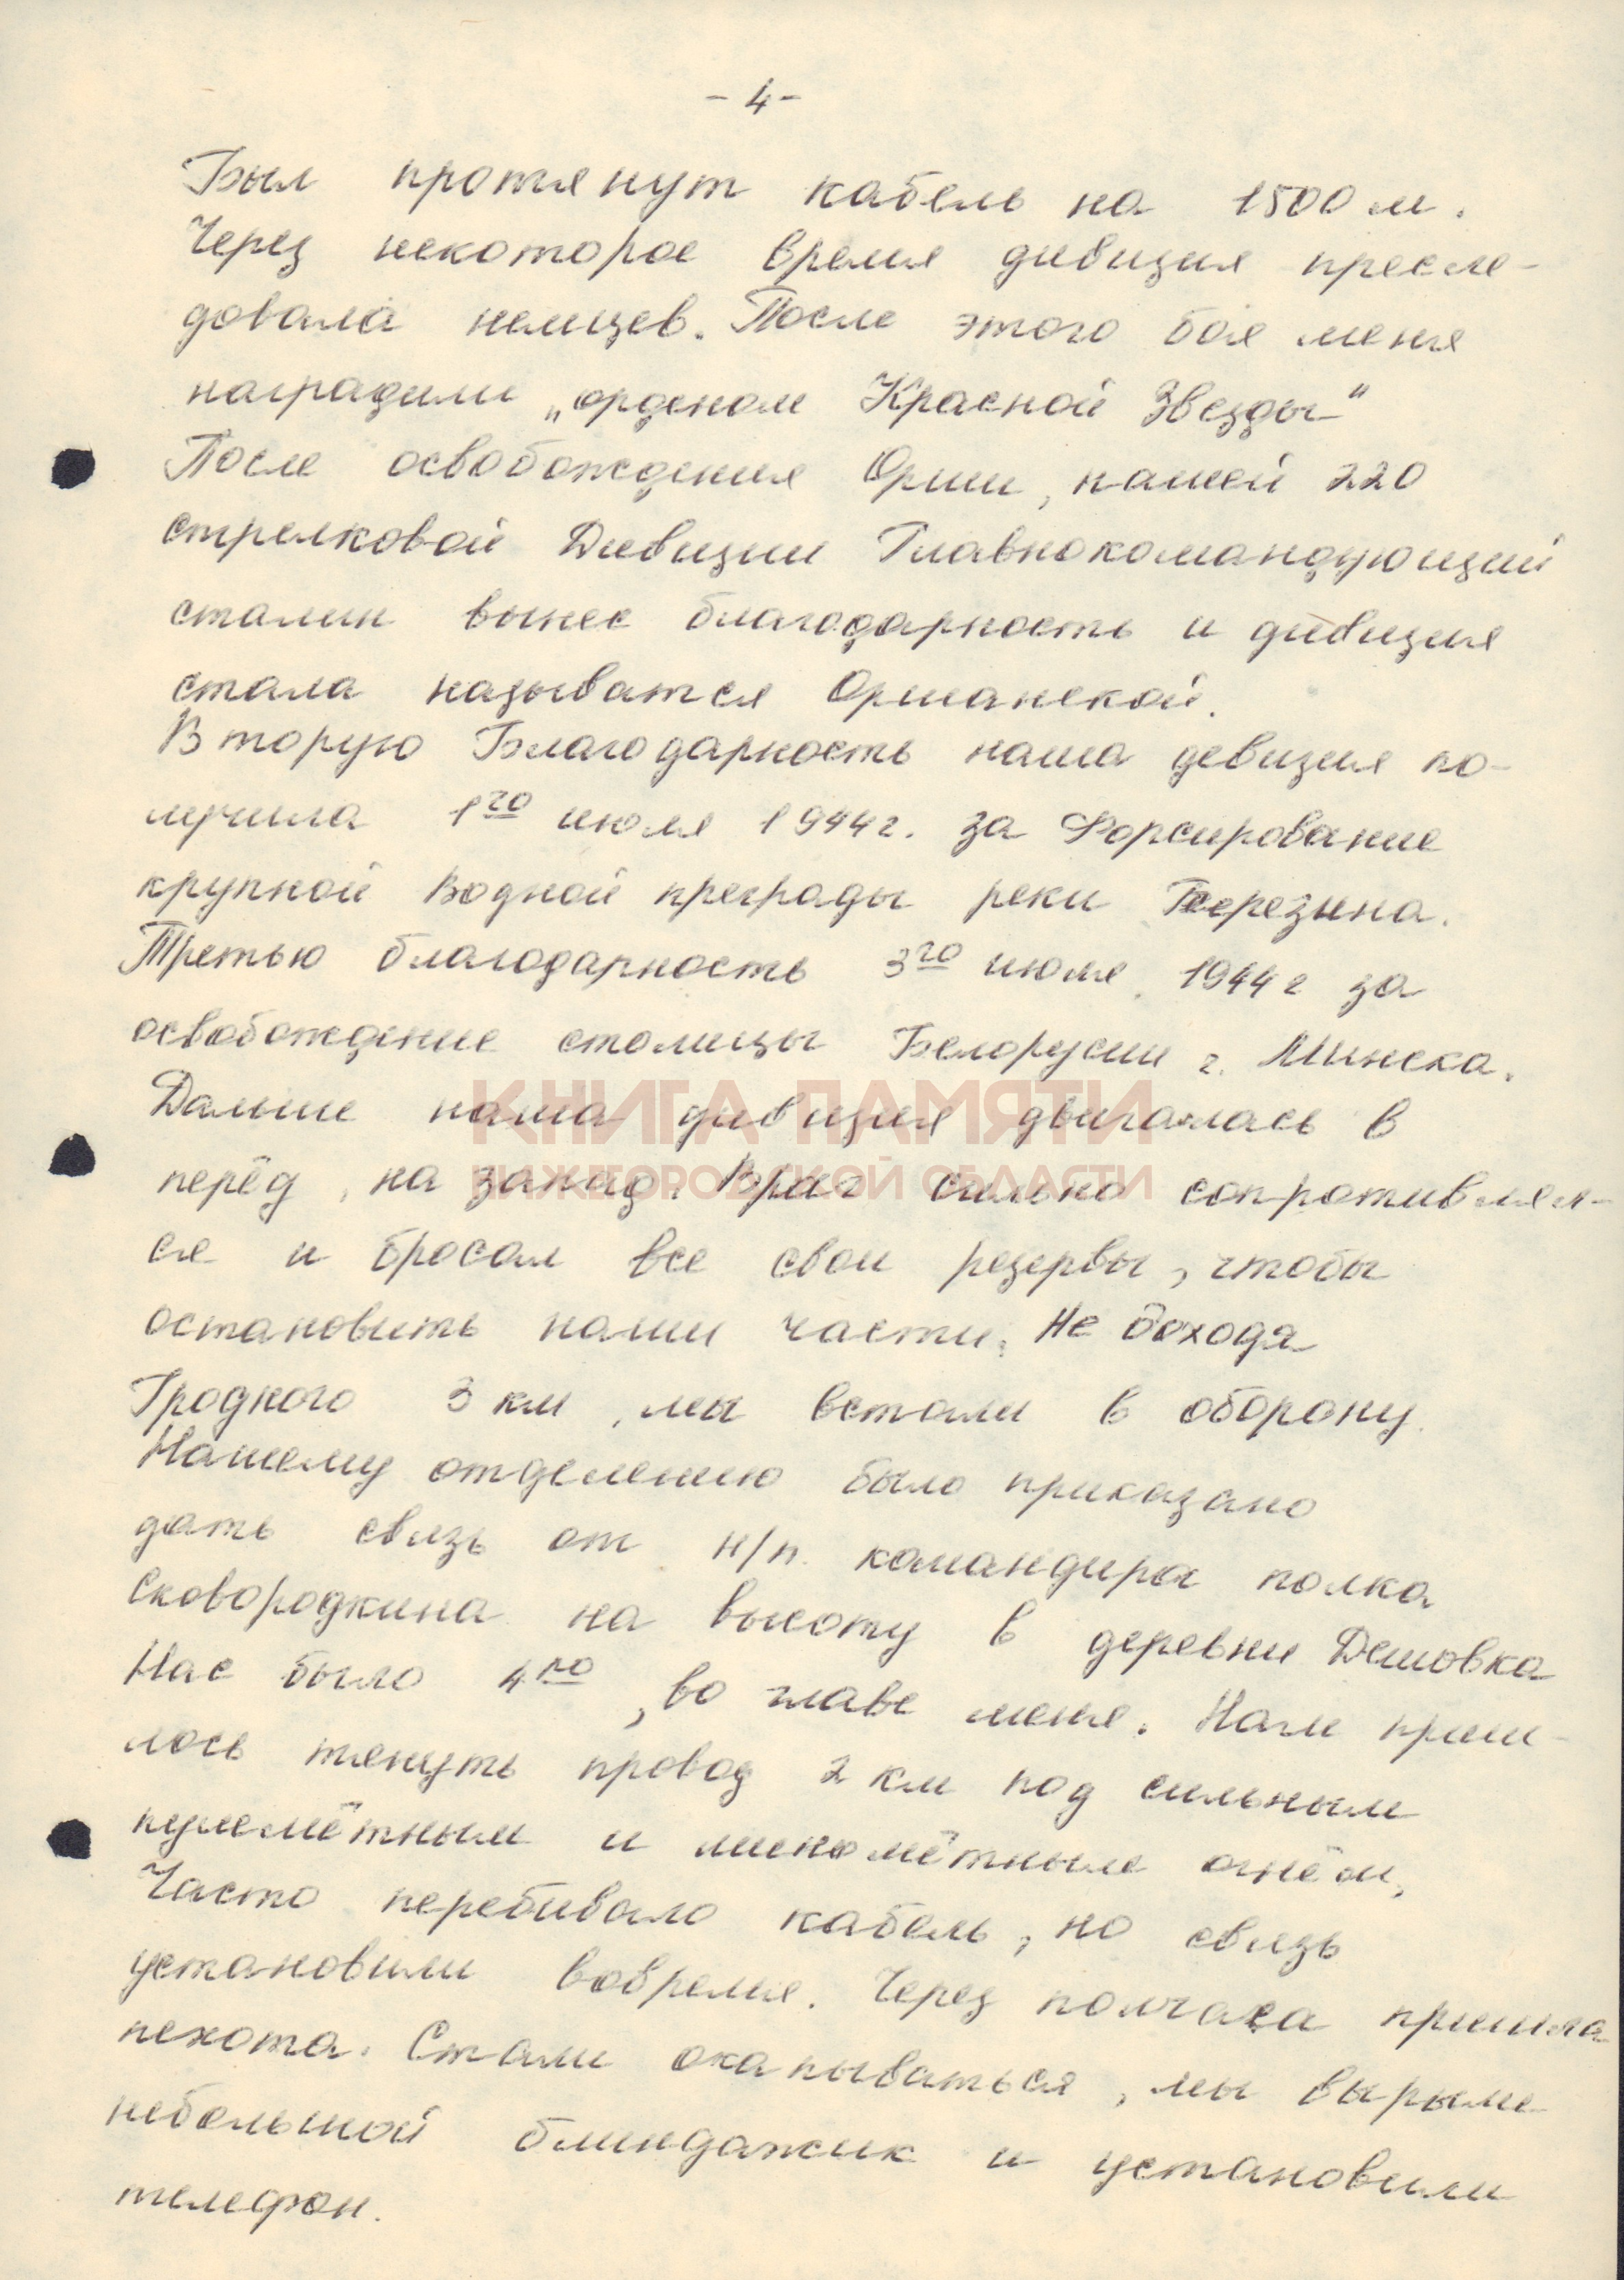 - 4 -
Был протянут кабель на 1500 м.
Через некоторое время дивизия пресле-
довала немцев. После этого боя меня
наградили „орденом Красной Звезды"
После освобождения Орши, нашей 220
стрелковой Дивизии Главнокомандующий
сталин вынес благодарность и дивизия
стала называтся Оршанской.
Вторую Благодарность наша девизия по-
лучила 1го июля 1944г. за Форсирование
крупной водной преграды реки Березина.
Третью благодарность 3го июля 1944г за
освобождение столицы Белорусии г. Минска.
Дальше наша дивизия двигалась в
перёд, на запад. Враг сильно сопротивлял-
ся и бросал все свои резервы, чтобы
остановить наши части. Не доходя
Гродного 3 км, мы встали в оборону.
Нашему отделению было приказано
дать связь от н/п. командира полка
Сковородкина на высоту в деревни Дешовка
Нас было 4ро, во главе меня. Нам приш-
лось тянуть провод 2 км под сильным
пулемётным и миномётным огнём,
Часто перебивало кабель, но связь
установили вовремя. Через полчаса пришла
пехота. Стали окапываться, мы вырыли
небольшой блиндажик и установили
телефон.
КНИГА ПАМЯТИ
НИЖЕГОРОДСКОЙ ОБЛАСТИ